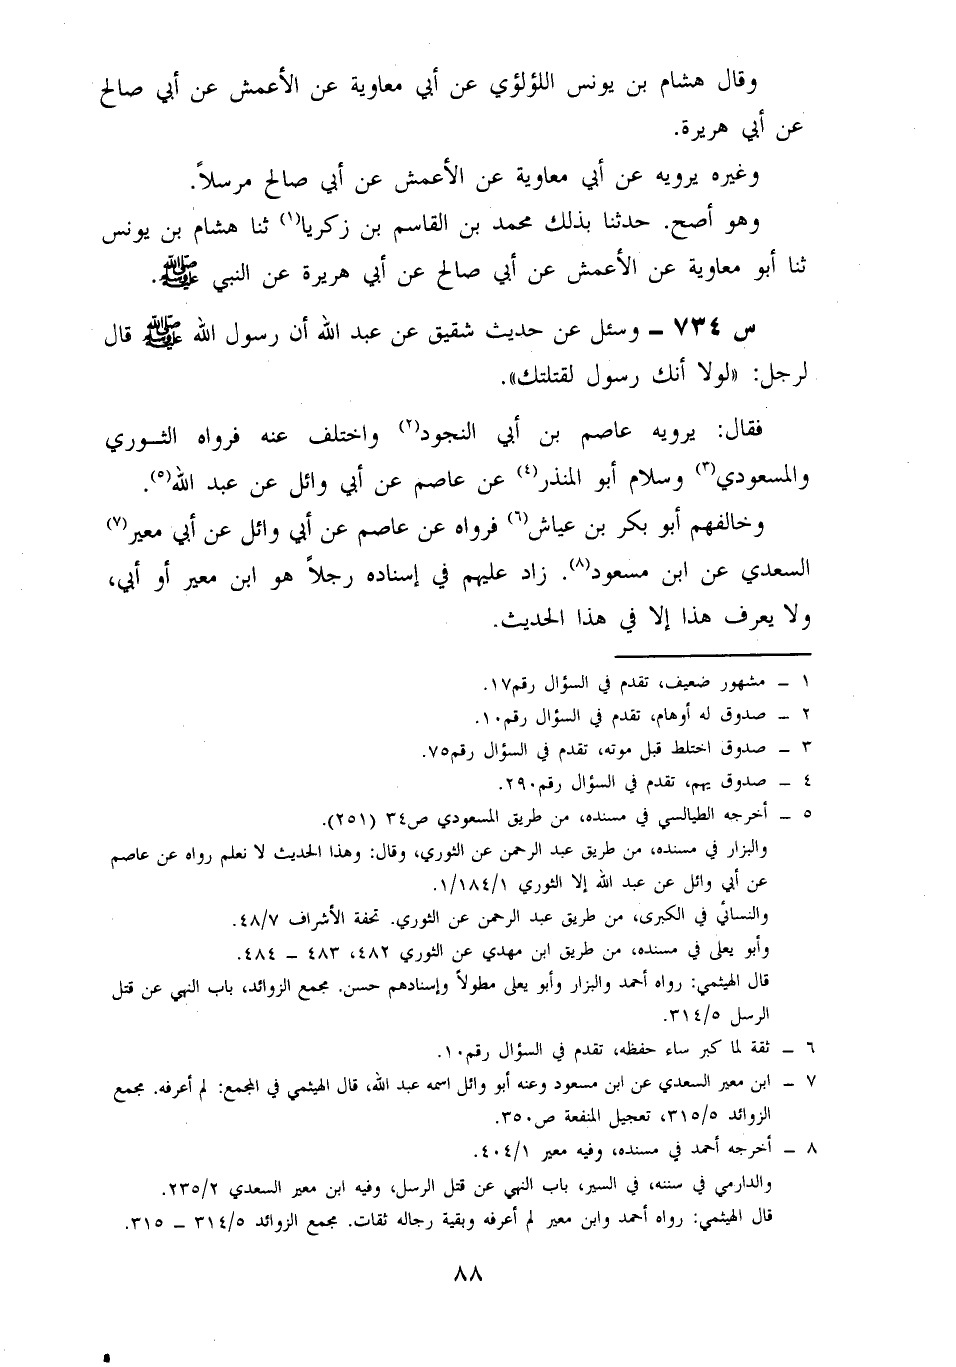 وقال هشام بن يونس اللؤلؤي عن أبي معاوية عن الأعمش عن أبي صالح
عن أبي هريرة.
وغيره يرويه عن أبي معاوية عن الأعمش عن أبي صالح مرسلاً.
وهو أصح. حدثنا بذلك محمد بن القاسم بن زكريا(١) ثنا هشام بن يونس
ثنا أبو معاوية عن الأعمش عن أبي صالح عن أبي هريرة عن النبي ﷺ.
س ٧٣٤ ــ وسئل عن حديث شقيق عن عبد الله أن رسول الله ﷺ قال
لرجل: «لولا أنك رسول لقتلتك».
فقال: يرويه عاصم بن أبي النجود(٢) واختلف عنه فرواه الثــوري
والمسعودي(٣) وسلام أبو المنذر(٤) عن عاصم عن أبي وائل عن عبد الله(٥).
وخالفهم أبو بكر بن عياش(٦) فرواه عن عاصم عن أبي وائل عن أبي معير(٧)
السعدي عن ابن مسعود(٨). زاد عليهم في إسناده رجلاً هو ابن معير أو أبي،
ولا يعرف هذا إلا في هذا الحديث.
١ ــ مشهور ضعيف، تقدم في السؤال رقم١٧.
٢ ــ صدوق له أوهام، تقدم في السؤال رقم١٠.
٣ ــ صدوق اختلط قبل موته، تقدم في السؤال رقم٧٥.
٤ ــ صدوق يهم، تقدم في السؤال رقم٢٩٠.
٥ ــ أخرجه الطيالسي في مسنده، من طريق المسعودي ص٣٤ (٢٥١).
والبزار في مسنده، من طريق عبد الرحمن عن الثوري، وقال: وهذا الحديث لا نعلم رواه عن عاصم
عن أبي وائل عن عبد الله إلا الثوري ١/١٨٤/١.
والنسائي في الكبرى، من طريق عبد الرحمن عن الثوري. تحفة الأشراف ٤٨/٧.
وأبو يعلى في مسنده، من طريق ابن مهدي عن الثوري ٤٨٢، ٤٨٣ ــ ٤٨٤.
قال الهيثمي: رواه أحمد والبزار وأبو يعلى مطولاً وإسنادهم حسن. مجمع الزوائد، باب النهي عن قتل
الرسل ٣١٤/٥.
٦ ــ ثقة لما كبر ساء حفظه، تقدم في السؤال رقم١٠.
٧ ــ ابن معير السعدي عن ابن مسعود وعنه أبو وائل اسمه عبد الله، قال الهيثمي في المجمع: لم أعرفه. مجمع
الزوائد ٣١٥/٥، تعجيل المنفعة ص٣٥٠.
٨ ــ أخرجه أحمد في مسنده، وفيه معير ٤٠٤/١.
والدارمي في سننه، في السير، باب النهي عن قتل الرسل، وفيه ابن معير السعدي ٢٣٥/٢.
قال الهيثمي: رواه أحمد وابن معير لم أعرفه وبقية رجاله ثقات. مجمع الزوائد ٣١٤/٥ ــ ٣١٥.
٨٨